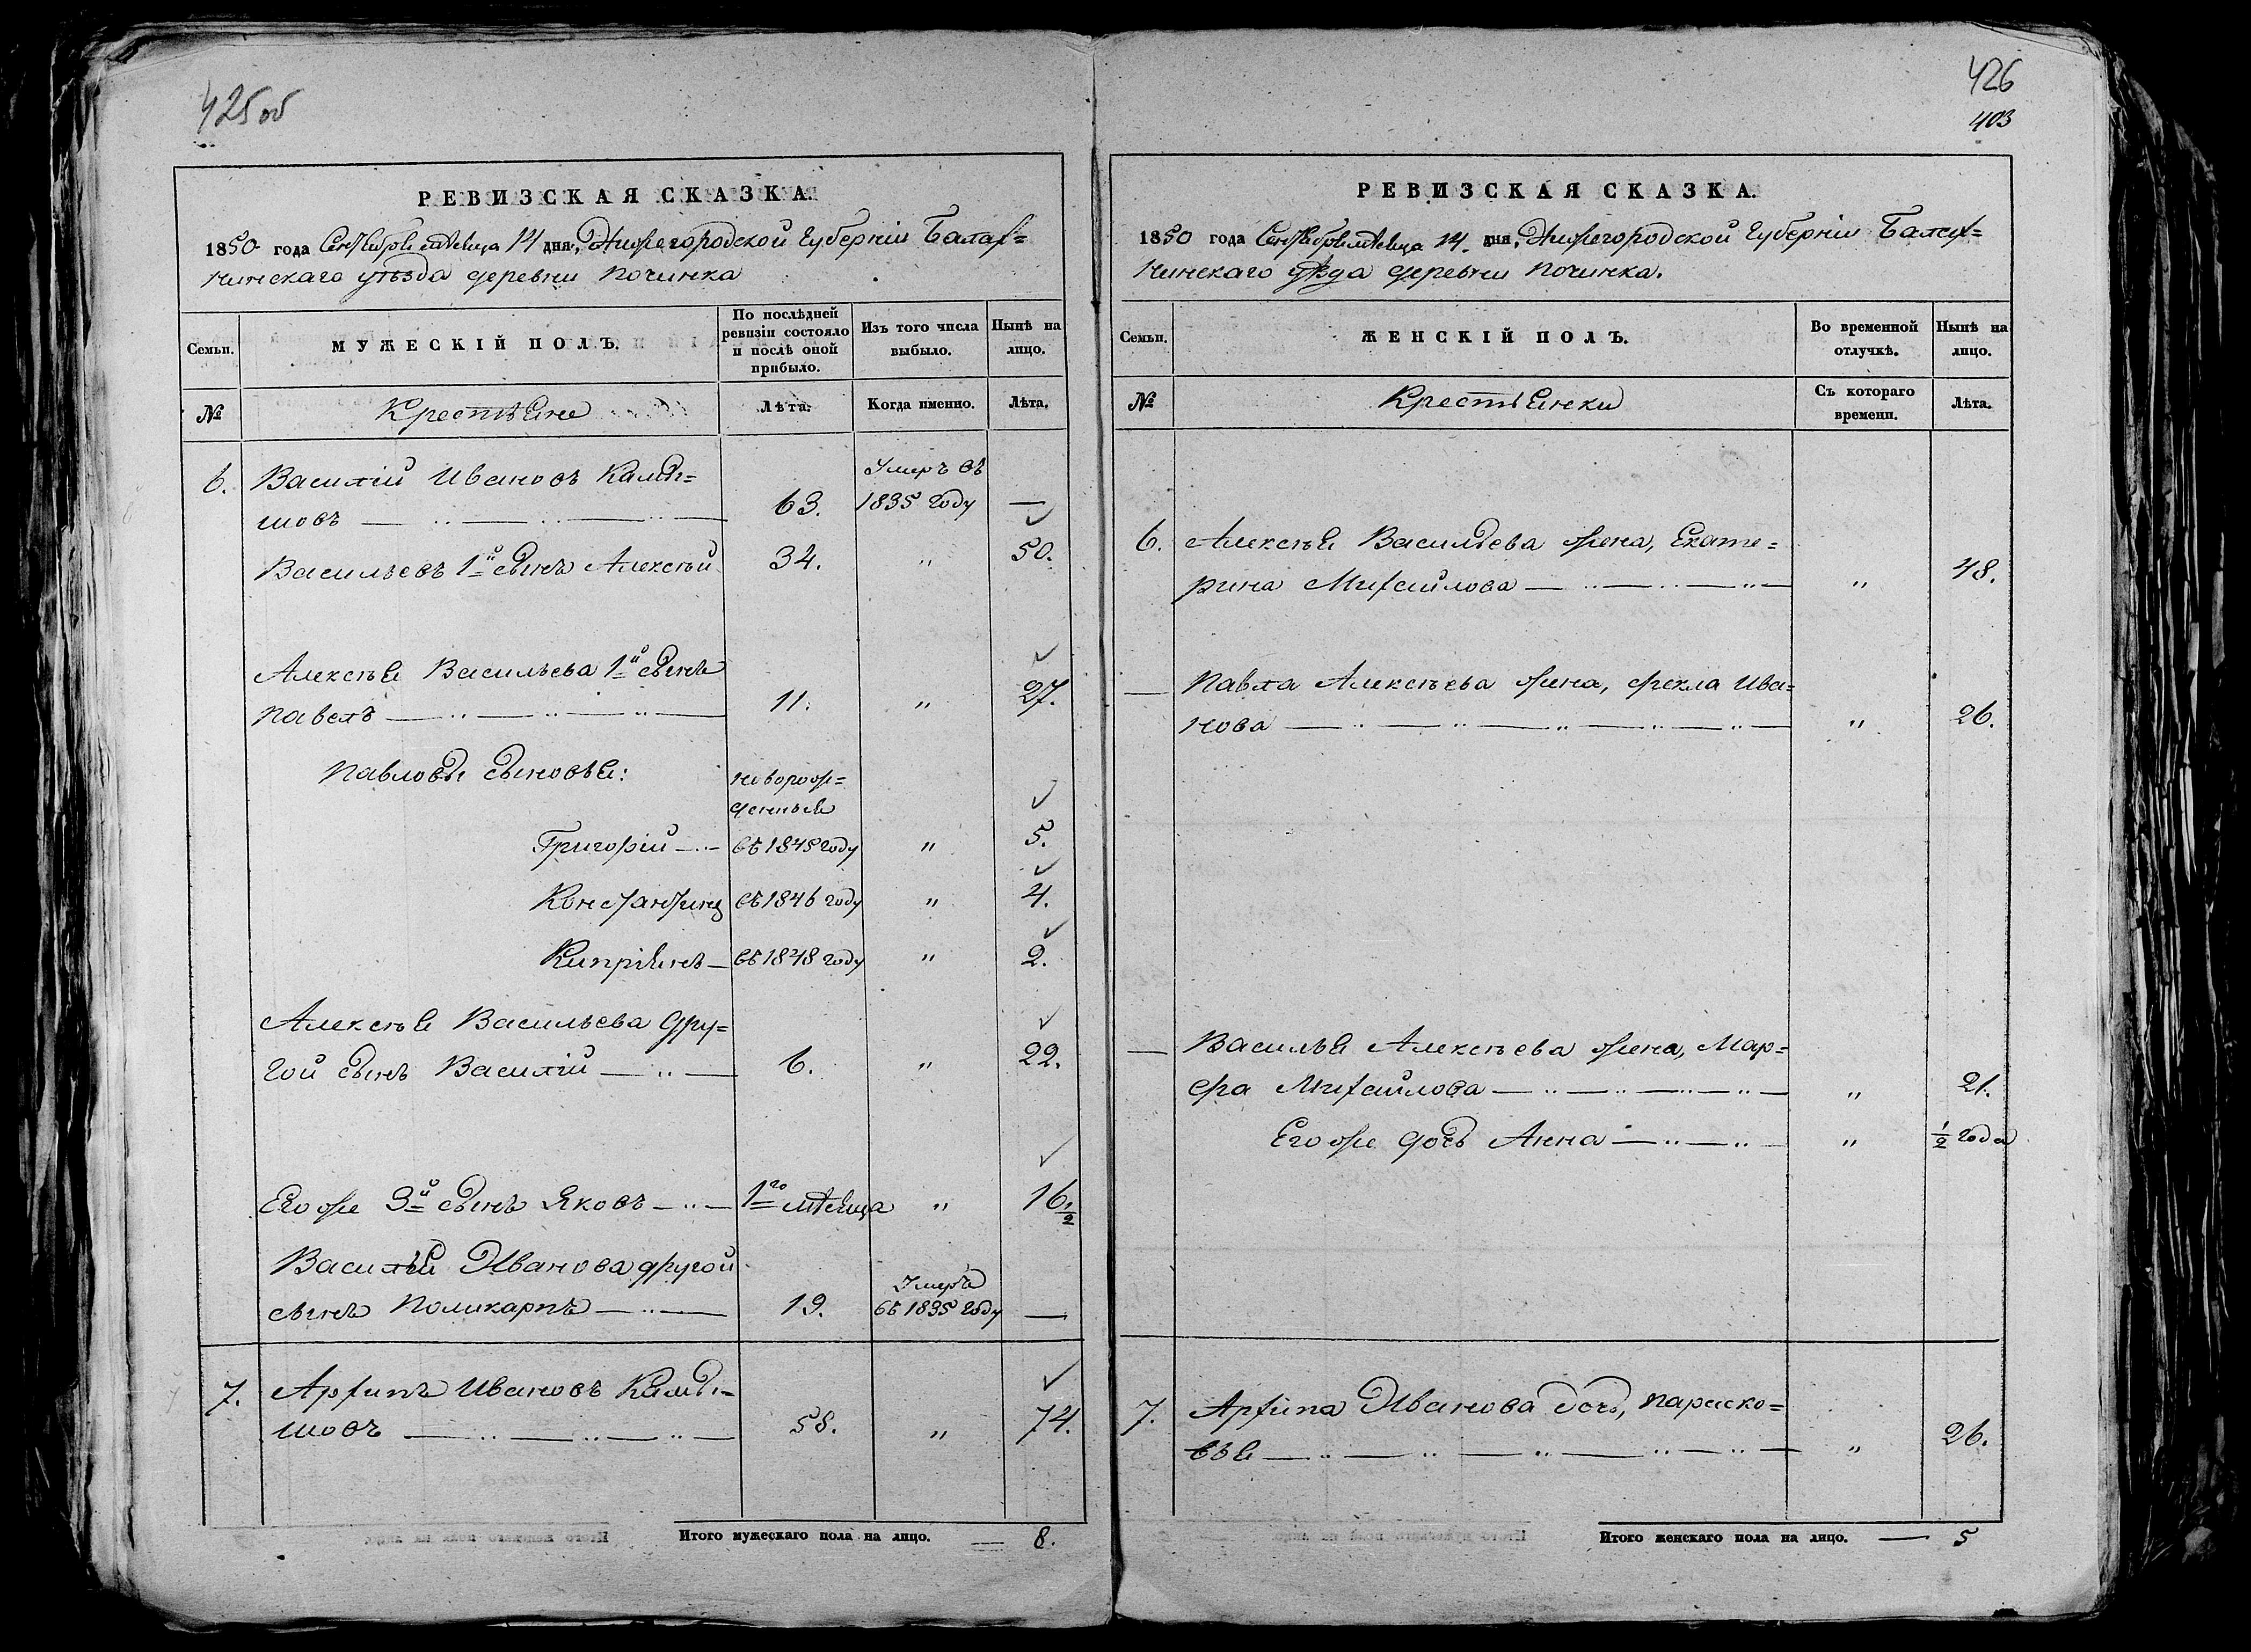 425 об
РЕВИЗСКАЯ СКАЗКА.
1850 года Сентября месяца 14 дня, Нижегородской Губерніи Балах=
нинскаго уѣзда деревни Починка
Семьи.
МУЖЕСКІЙ ПОЛЪ.
По послѣдней
ревизіи состояло
и послѣ оной
прибыло.
Изъ того числа
выбыло.
Нынѣ на
лицо.
№
Крестьяне
Лѣта.
Когда именно.
Лѣта.
6.
Василій Ивановъ Камы=
шовъ
63.
Умеръ въ
1835 году
—
Васильевъ 1й сынъ Алексѣй
34.
"
50.
Алексѣя Васильева 1й сынъ
Павелъ
11.
"
27.
Павловы сыновья:
новорож=
денные
Григорій
въ 1845 году
"
5.
Константинъ
въ 1846 году
"
4.
Кипріянъ
въ 1848 году
"
2.
Алексѣя Васильева дру=
гой сынъ Василій
6.
"
22.
Его же 3й сынъ Яковъ
1го мѣсяца
"
16 1/2
Василья Иванова другой
сынъ Поликарпъ
19.
Умеръ
въ 1835 году
—
7.
Архипъ Ивановъ Камы=
шовъ
58.
"
74.
Итого мужескаго пола на лицо. — 8.
426
403
РЕВИЗСКАЯ СКАЗКА.
1850 года Сентября мѣсяца 14. дня, Нижегородской Губерніи Балах=
нинскаго уѣзда деревни Починка.
Семьи.
ЖЕНСКІЙ ПОЛЪ.
Во временной
отлучкѣ.
Нынѣ на
лицо.
№
Крестьянки
Съ котораго
времени.
Лѣта.
6.
Алексѣя Васильева жена, Екате=
рина Михайлова
"
48.
— Павла Алексѣева жена, Фекла Ива=
нова
"
26.
— Василья Алексѣева жена, Мар=
фа Михайлова
"
21.
Его же дочь Анна
"
1/2 года
7.
Архипа Иванова дочь, Параско=
вья
"
26.
Итого женскаго пола на лицо. — 5